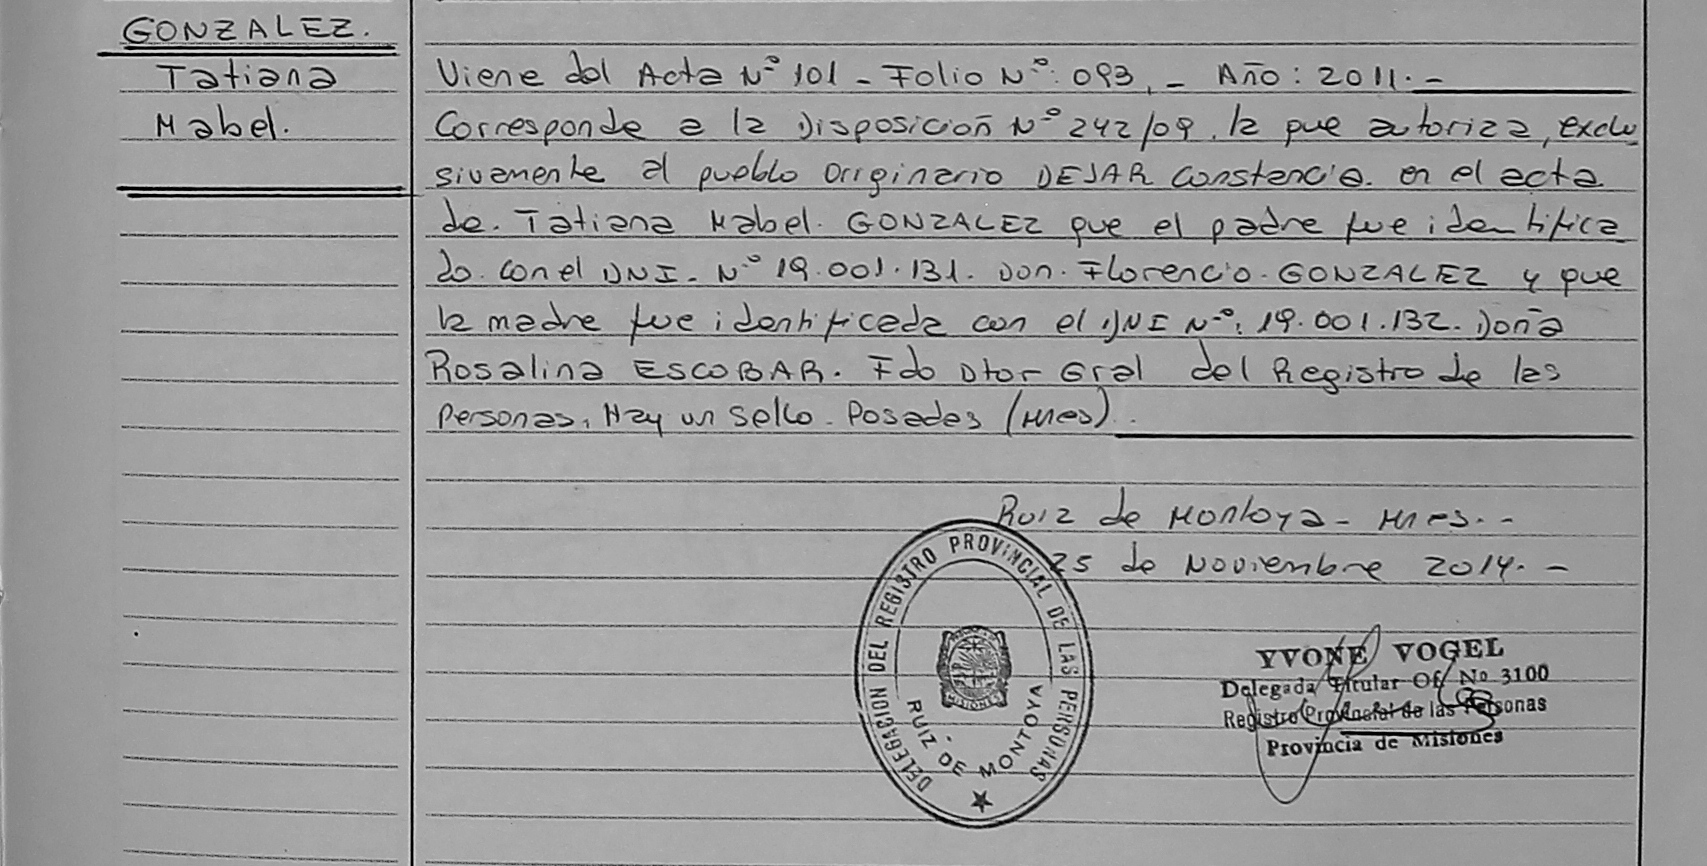 GONZALEZ.
Tatiana
Mabel.
Viene del Acta Nº 101 - Folio Nº: 093. - Año: 2011. -
Corresponde a la Disposición Nº 242/09. la que autoriza, exclu
sivamente al pueblo originario DEJAR constancia. en el acta
de. Tatiana Mabel. GONZALEZ que el padre fue identifica
do. con el DNI. Nº 19.001.131. Don. Florencio. GONZALEZ y que
la madre fue identificada con el DNI Nº: 19.001.132. Doña
Rosalina ESCOBAR. Fdo Dtor Gral del Registro de las
Personas. Hay un sello. Posadas (Mnes).
Ruiz de Montoya - Mnes. -
25 de Noviembre 2014. -
DELEGACION DEL REGISTRO PROVINCIAL DE LAS PERSONAS
RUIZ DE MONTOYA
MISIONES
YVONE VOGEL
Delegada Titular Of. Nº 3100
Registro Provincial de las Personas
Provincia de Misiones